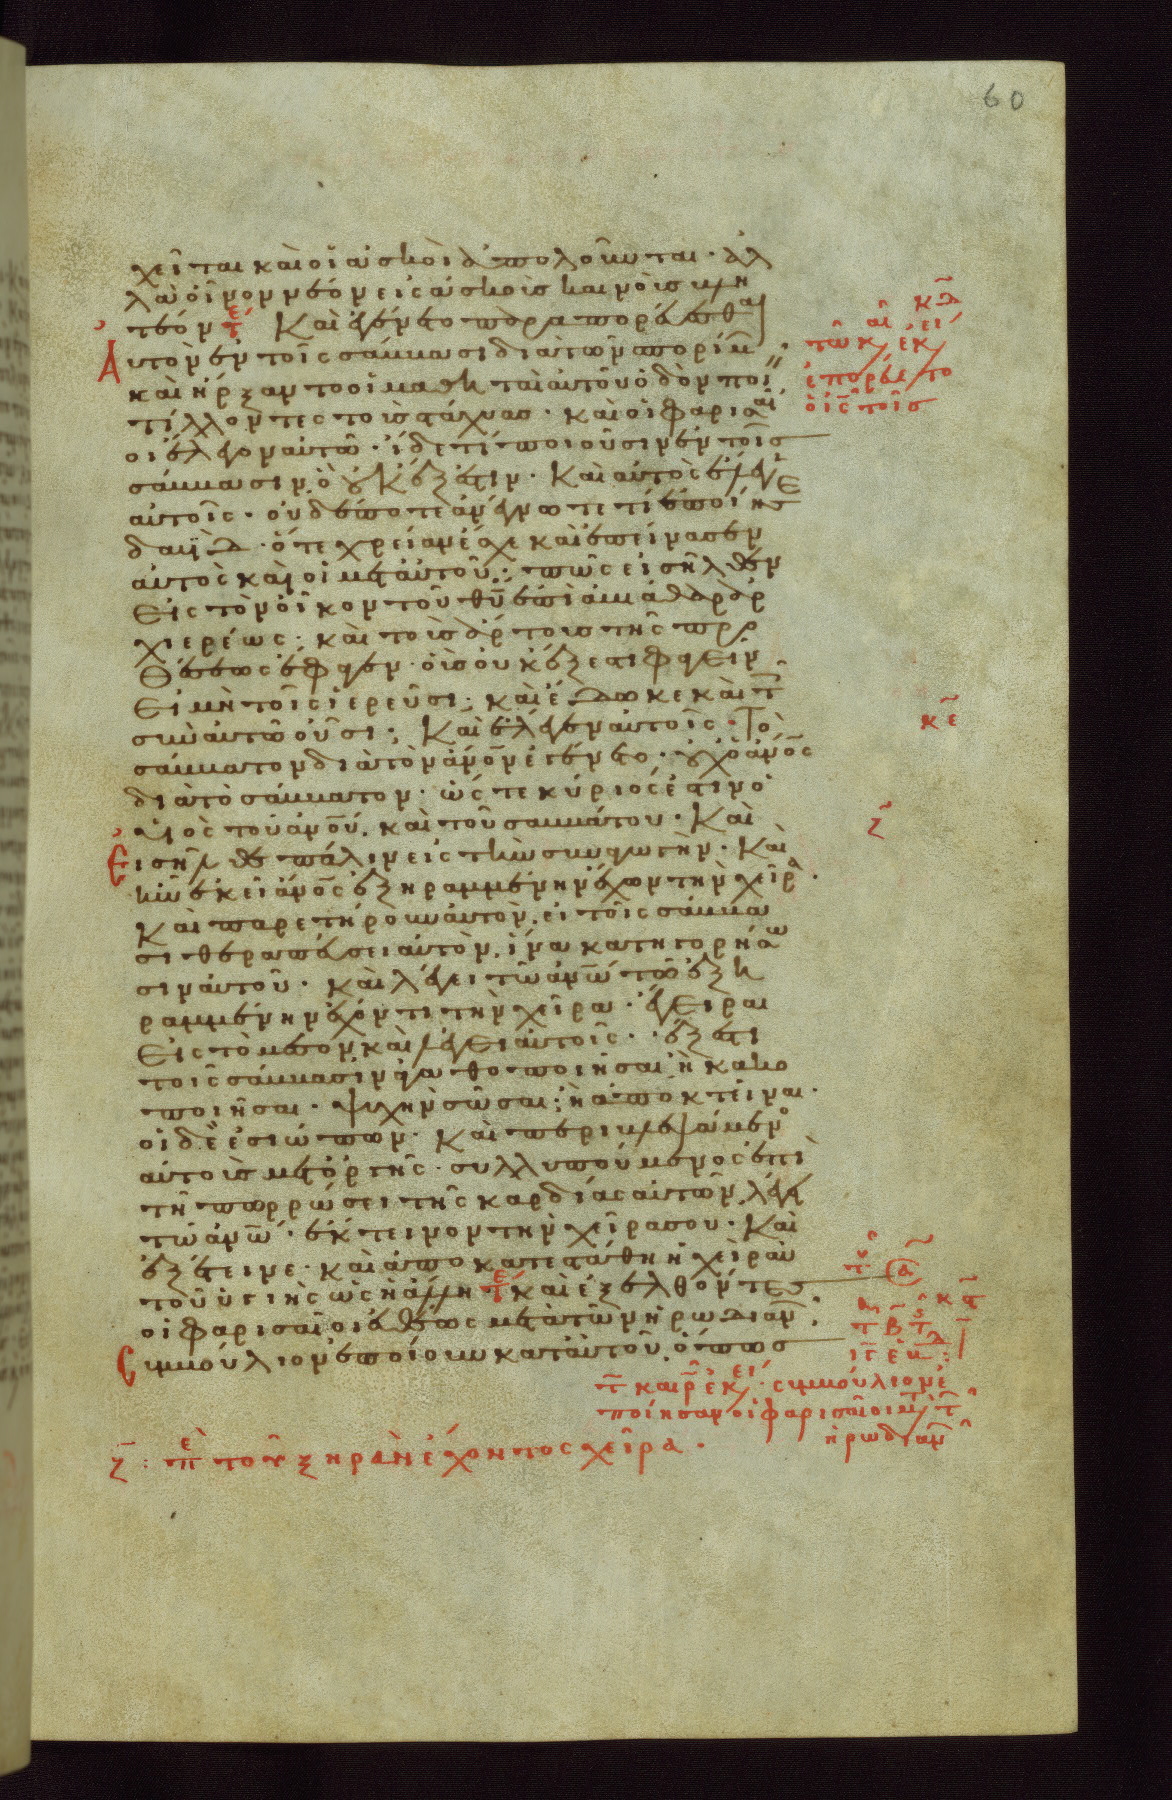 60
χεῖται καὶ οἱ ἀσκοὶ ἀπολοῦνται · ἀλ
λὰ οἶνον νέον εἰς ἀσκοὺς καινοὺς βλη
τέον τέ Καὶ ἐγένετο παραπορεύεσθαι
αὐτὸν ἐν τοῖς σάββασι διὰ τῶν σπορίμ
καὶ ἤρξαντο οἱ μαθηταὶ αὐτοῦ ὁδὸν ποι
τίλλοντες τοὺς στάχυας · καὶ οἱ φαρισαῖ
οι ἔλεγον αὐτῶ · ἴδε τί ποιοῦσιν ἐν τοῖς
σάββασιν, ὃ οὐκ ἔξεστιν · Καὶ αὐτὸς ἔλεγε
αὐτοῖς · οὐδέποτε ἀνέγνωτε τί ἐποίησ
δαυΐδ · ὅτε χρείαν ἔσχε καὶ ἐπείνασεν
αὐτὸς καὶ οἱ μετ αὐτοῦ; πῶς εἰσῆλθεν
εἰς τὸν οἶκον τοῦ θῦ ἐπὶ ἀβιάθαρ ἀρ
χιερέως · καὶ τοὺς ἄρτους τῆς προ
θέσεως ἔφαγεν · οὓς οὐκ ἔξεστι φαγεῖν
εἰ μὴ τοῖς ἱερεῦσι · καὶ ἔδωκε καὶ τ
σὺν αὐτῶ οὖσι; Καὶ ἔλεγεν αὐτοῖς · Τὸ
σάββατον διὰ τὸν ἄνον ἐγένετο · οὐχ ὁ ἄνος
διὰ τὸ σάββατον · ὥστε κύριός ἐστιν ὁ
υἱὸς τοῦ ἀνου, καὶ τοῦ σαββάτου · Καὶ
εἰσῆλθε πάλιν εἰς τὴν συναγωγήν · Καὶ
ἦν ἐκεῖ ἄνος ἐξηραμμένην ἔχων τὴν χεῖρα ·
Καὶ παρετήρουν αὐτὸν, εἰ τοῖς σάββα
σι θεραπεύσει αὐτὸν, ἵνα κατηγορήσω
σιν αὐτοῦ · καὶ λέγει τῶ ἀνῶ τῶ ἐξη
ραμμένην ἔχοντι τὴν χεῖρα · ἔγειραι
εἰς τὸ μέσον καὶ λέγει αὐτοῖς · ἔξεστι
τοῖς σάββασιν ἀγαθοποιῆσαι ἢ κακο
ποιῆσαι · ψυχὴν σῶσαι; ἢ ἀποκτεῖναι ·
οἱ δὲ ἐσιώπων · Καὶ περιβλεψάμενο
αὐτοὺς μετ ὀργῆς · συλλυπούμενος ἐπὶ
τῆ πωρώσει τῆς καρδίας αὐτῶν, λέγει
τῶ ἀνῶ · ἔκτεινον τὴν χεῖρα σου · Καὶ
ἐξέτεινε · καὶ ἀποκατεστάθη ἡ χεὶρ αὐ
τοῦ ὑγιὴς ὡς ἡ ἄλλη τέ καὶ ἐξελθόντες
οἱ φαρισαῖοι εὐθέως μετὰ τῶν ἡρωδιαν
συμβούλιον ἐποίουν κατ αὐτοῦ, ὅπως
κδ
τῶ κ ἐκεί
ἐπορεύετο
ὁ ις τοῖς
κε
ζ
κς
τ κ ἐκεί · συμβούλιον ἐ
ποίησαν οἱ φαρισαῖοι μ τ
ἡρωδιαν
ζ : πε τοῦ ξηρὰν ἔχοντος χεῖρα ·